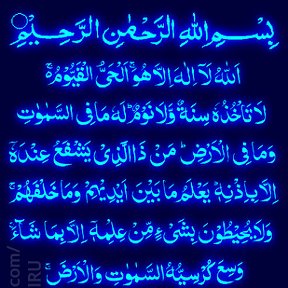 بِسْمِ اللهِ الرَّحْمٰنِ الرَّحِيْمِ
اَللهُ لَآ اِلٰهَ اِلَّا هُوَ ۚ اَلْحَيُّ الْقَيُّوْمُ ۚ
لَا تَاْخُذُهٗ سِنَةٌ وَّلَا نَوْمٌ ؕ لَهٗ مَا فِي السَّمٰوٰتِ
وَمَا فِي الْاَرْضِ ؕ مَنْ ذَا الَّذِيْ يَشْفَعُ عِنْدَهٗٓ
اِلَّا بِاِذْنِهٖ ؕ يَعْلَمُ مَا بَيْنَ اَيْدِيْهِمْ وَمَا خَلْفَهُمْ ۚ
وَلَا يُحِيْطُوْنَ بِشَيْءٍ مِّنْ عِلْمِهٖٓ اِلَّا بِمَا شَآءَ ۚ
وَسِعَ كُرْسِيُّهُ السَّمٰوٰتِ وَالْاَرْضَ ۚ
com/
IRU